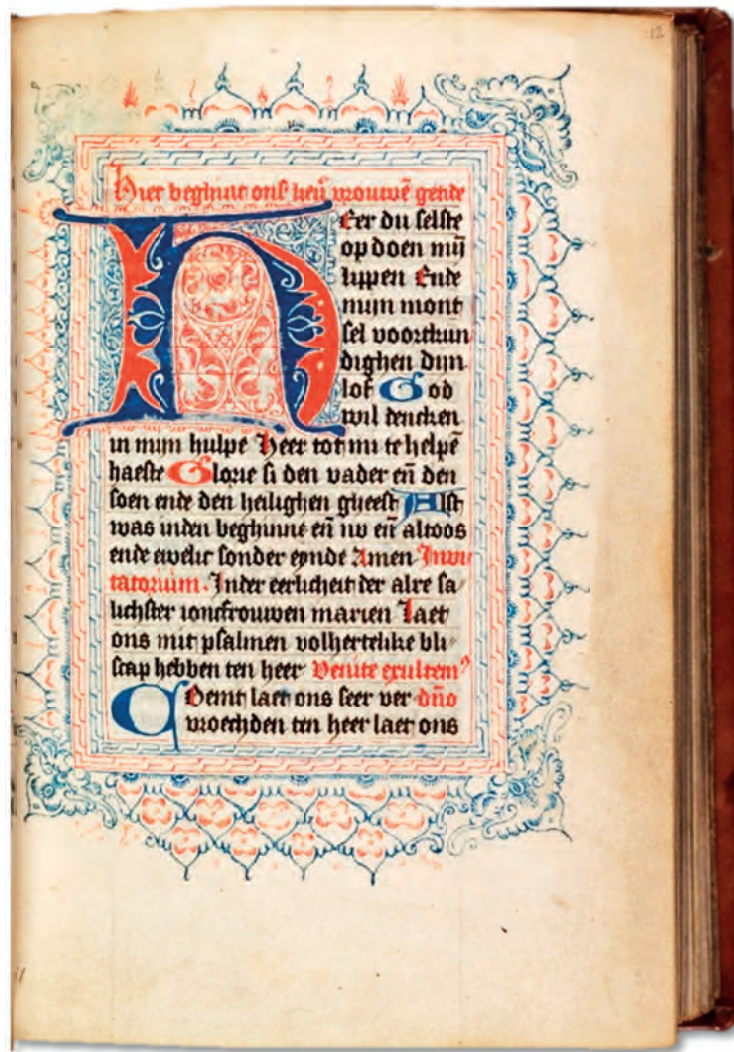 12
Hier beghint ons heē vrouwē getide
HEer du selste
op doen mijn
lippen Ende
mijn mont
sel voortkun
dighen dijn
lof God
wil dencken
in mijn hulpe Heer tot mi te helpē
haeste Glorie si den vader eñ den
soen ende den heilighen gheest Alst
was inden beghinne eñ nv eñ altoos
ende ewelic sonder eynde Amen Invi
tatorium. Inder eerlicheit der alre sa
lichster ioncfrouwen marien Laet
ons mit psalmen volhertelike bli
scap hebben ten heer Venite exultem⁹
Coemt laet ons seer ver dño
vroechden ten heer laet ons